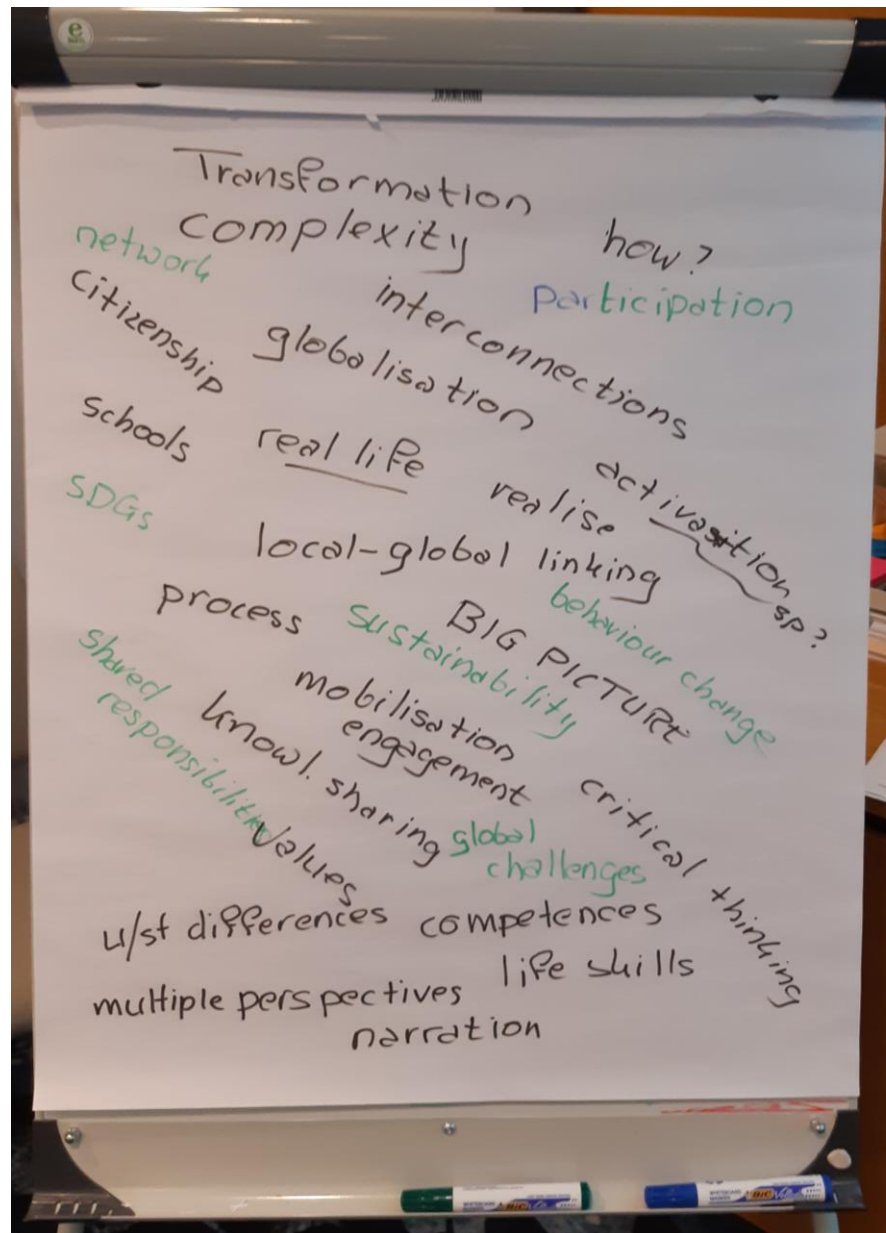 Transformation
complexity
how?
network
interconnections
participation
citizenship
globalisation
schools
real life
realise
activasition
sp?
SDGs
local-global linking
behaviour change
process
sustainability
BIG PICTURE
shared
responsibilities
mobilisation
engagement
knowl. sharing
critical thinking
values
global
challenges
u/st differences
competences
life skills
multiple perspectives
narration
BIC
BIC